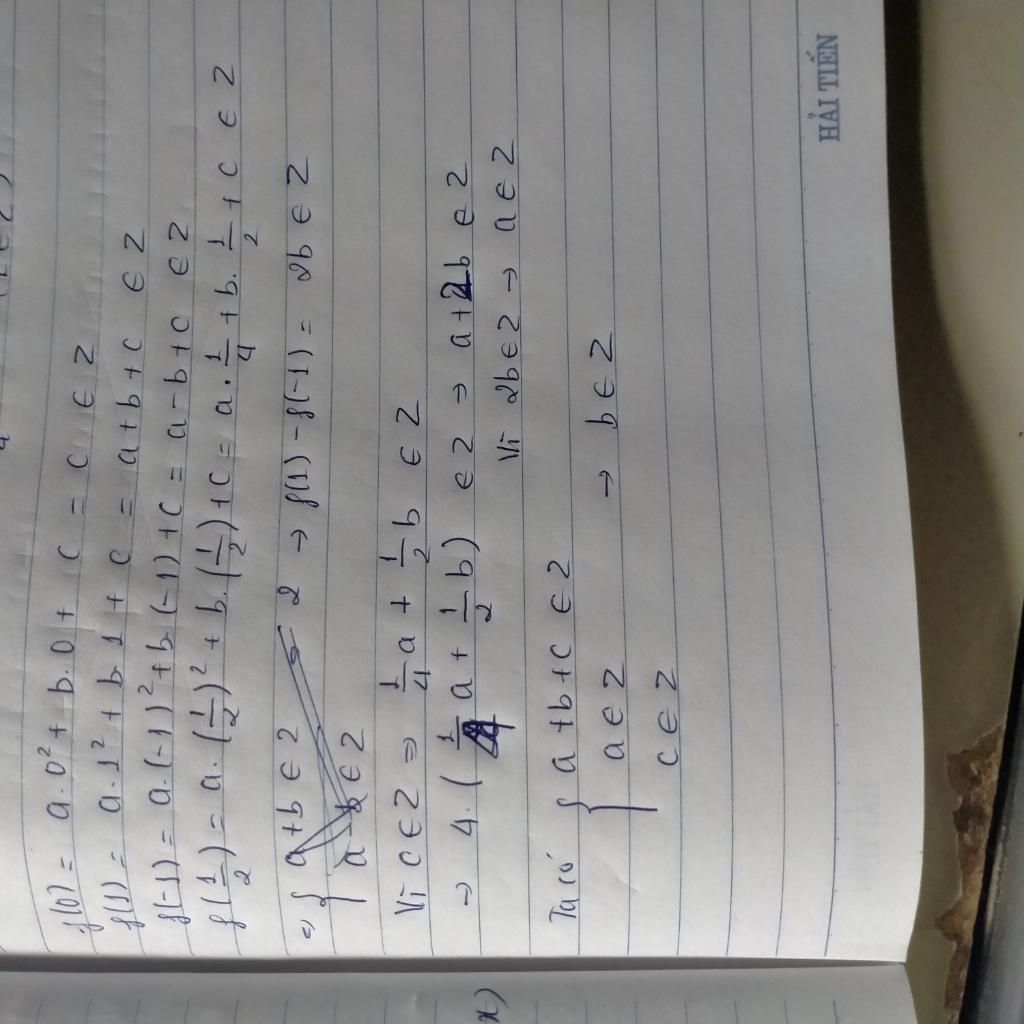 f(0) = a.0² + b.0 + c = c ∈ Z
f(1) = a.1² + b.1 + c = a + b + c ∈ Z
f(-1) = a.(-1)² + b.(-1) + c = a - b + c ∈ Z
f(1/2) = a.(1/2)² + b.(1/2) + c = a.1/4 + b.1/2 + c ∈ Z
=> { a + b ∈ Z 2 → f(1) - f(-1) = 2b ∈ Z
a - b ∈ Z
Vì c ∈ Z => 1/4 a + 1/2 b ∈ Z
→ 4.(1/4 a + 1/2 b) ∈ Z → a + 2b ∈ Z
Vì 2b ∈ Z → a ∈ Z
Ta có { a + b + c ∈ Z
a ∈ Z → b ∈ Z
c ∈ Z
HẢI TIẾN
x)